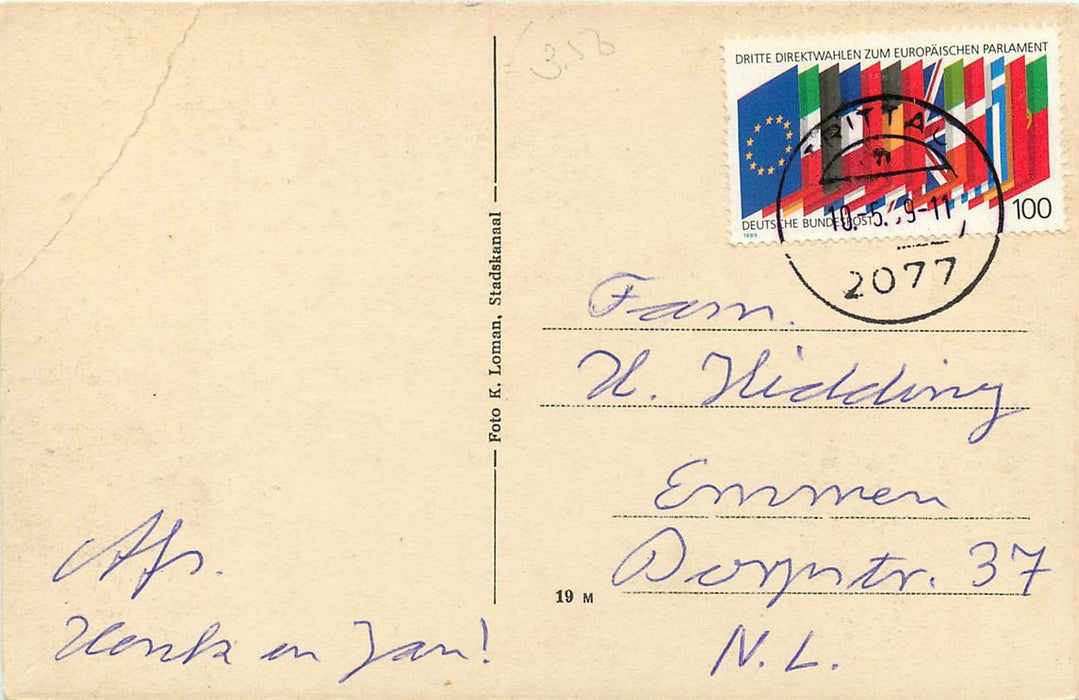 358
DRITTE DIREKTWAHLEN ZUM EUROPÄISCHEN PARLAMENT
DEUTSCHE BUNDESPOST
1989
100
TRITTA
10.-5. 9-11
2077
Foto K. Loman, Stadskanaal
Fam.
H. Hidding
Emmen
Dorpstr. 37
N.L.
19 M
Afs.
Henk en Jan!